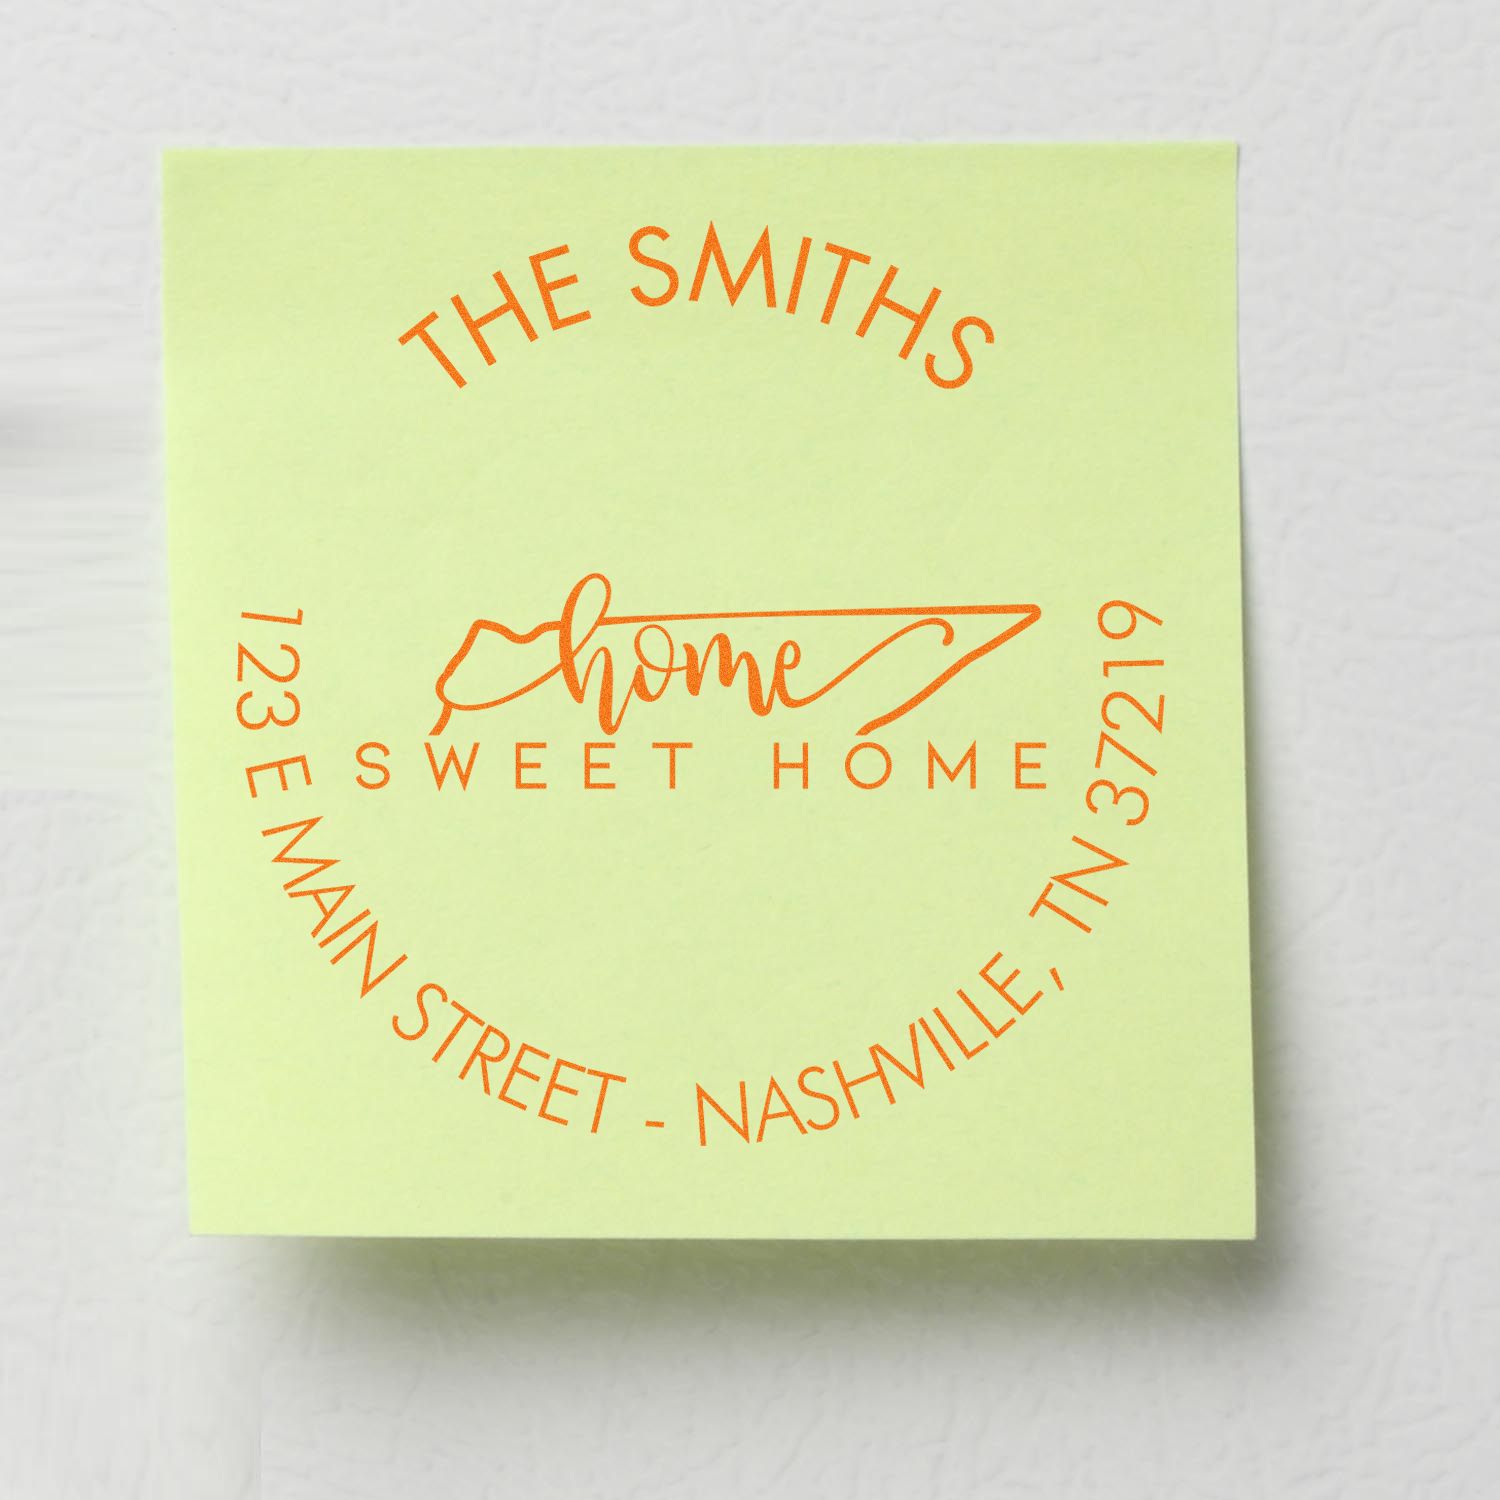 THE SMITHS
home
SWEET HOME
123 E MAIN STREET - NASHVILLE, TN 37219